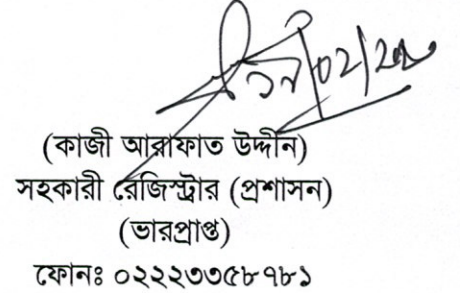 (কাজী আরাফাত উদ্দীন)
সহকারী রেজিস্ট্রার (প্রশাসন)
(ভারপ্রাপ্ত)
ফোনঃ ০২২২৩৩৫৮৭৮১